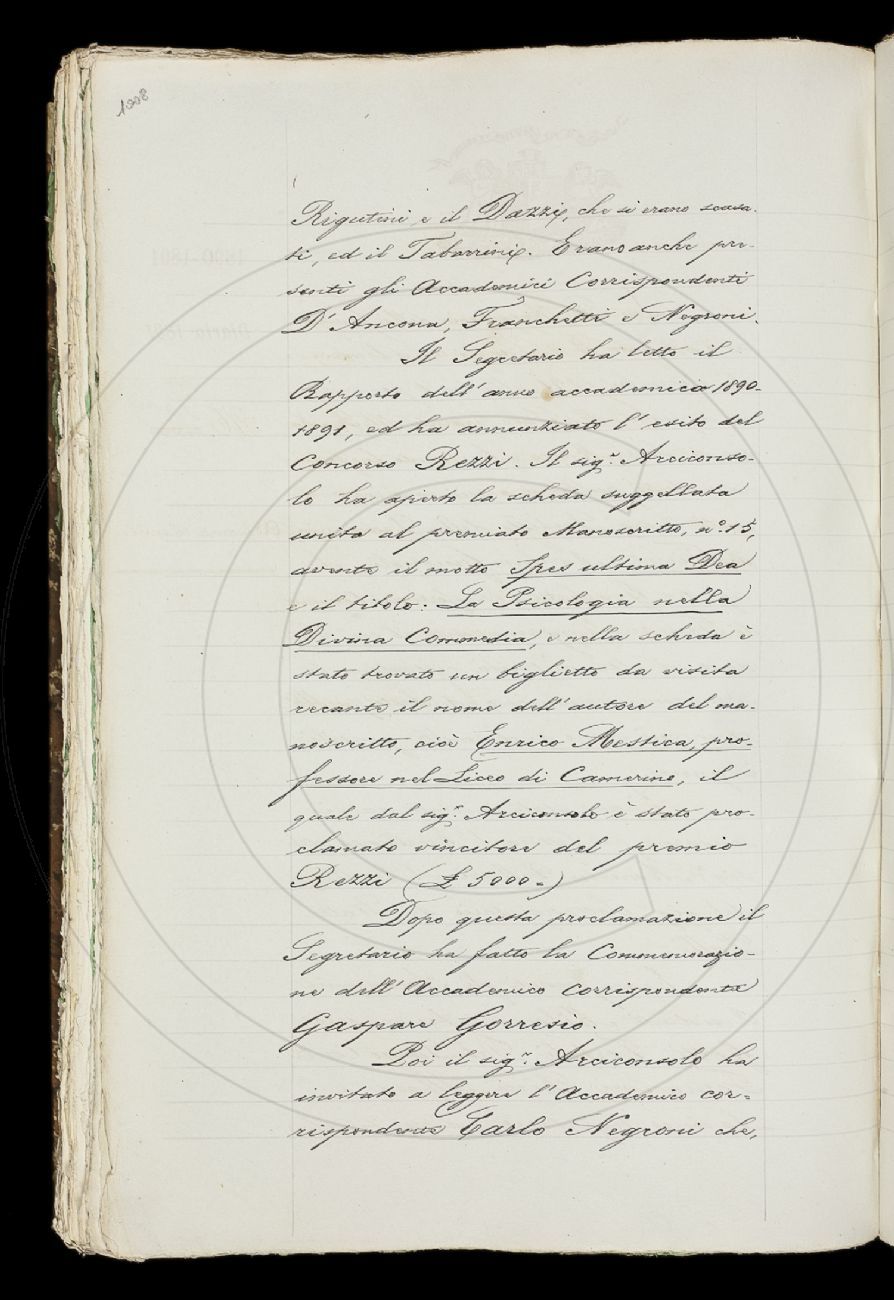 1208
Rigutini e il Dazzi, che si erano scusa-
ti, ed il Tabarrini. Erano anche pre-
senti gli Accademici Corrispondenti
D'Ancona, Franchetti e Negroni.
Il Segretario ha letto il
Rapporto dell'anno accademico 1890-
1891, ed ha annunziato l'esito del
Concorso Rezzi. Il sig.r Arciconso-
lo ha aperto la scheda suggellata
unita al premiato Manoscritto, n.º 15,
avente il motto Spes ultima Dea
e il titolo: La Psicologia nella
Divina Commedia, e nella scheda è
stato trovato un biglietto da visita
recante il nome dell'autore del ma-
noscritto, cioè Enrico Mestica, pro-
fessore nel Liceo di Camerino, il
quale dal sig.r Arciconsolo è stato pro-
clamato vincitore del premio
Rezzi (£ 5000=)
Dopo questa proclamazione il
Segretario ha fatto la Commemorazio-
ne dell'Accademico corrispondente
Gaspare Gorresio.
Poi il sig.r Arciconsolo ha
invitato a leggere l'Accademico cor-
rispondente Carlo Negroni che,